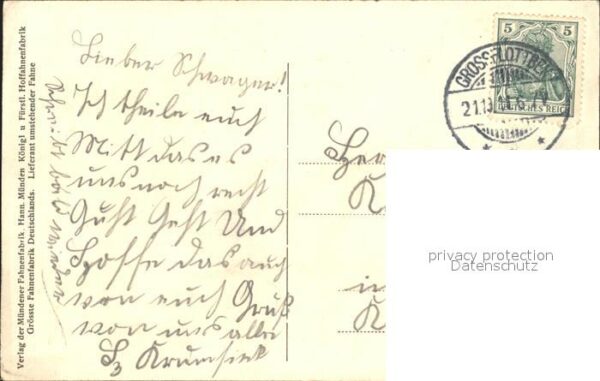 Verlag der Mündener Fahnenfabrik. Hann. Münden Königl u Fürstl. Hoffahnenfabrik
Grösste Fahnenfabrik Deutschlands. Lieferant umstehender Fahne
Schreibt bald wieder
Lieber Schwager!
Ich theile euch
Mitt das es
uns noch recht
Guht Geht Und
Hoffe das auch
von euch Gruß
von uns alle
H Krumsiek
5 5
DEUTSCHES REICH
21.
Her
K
in
K
privacy protection
Datenschutz